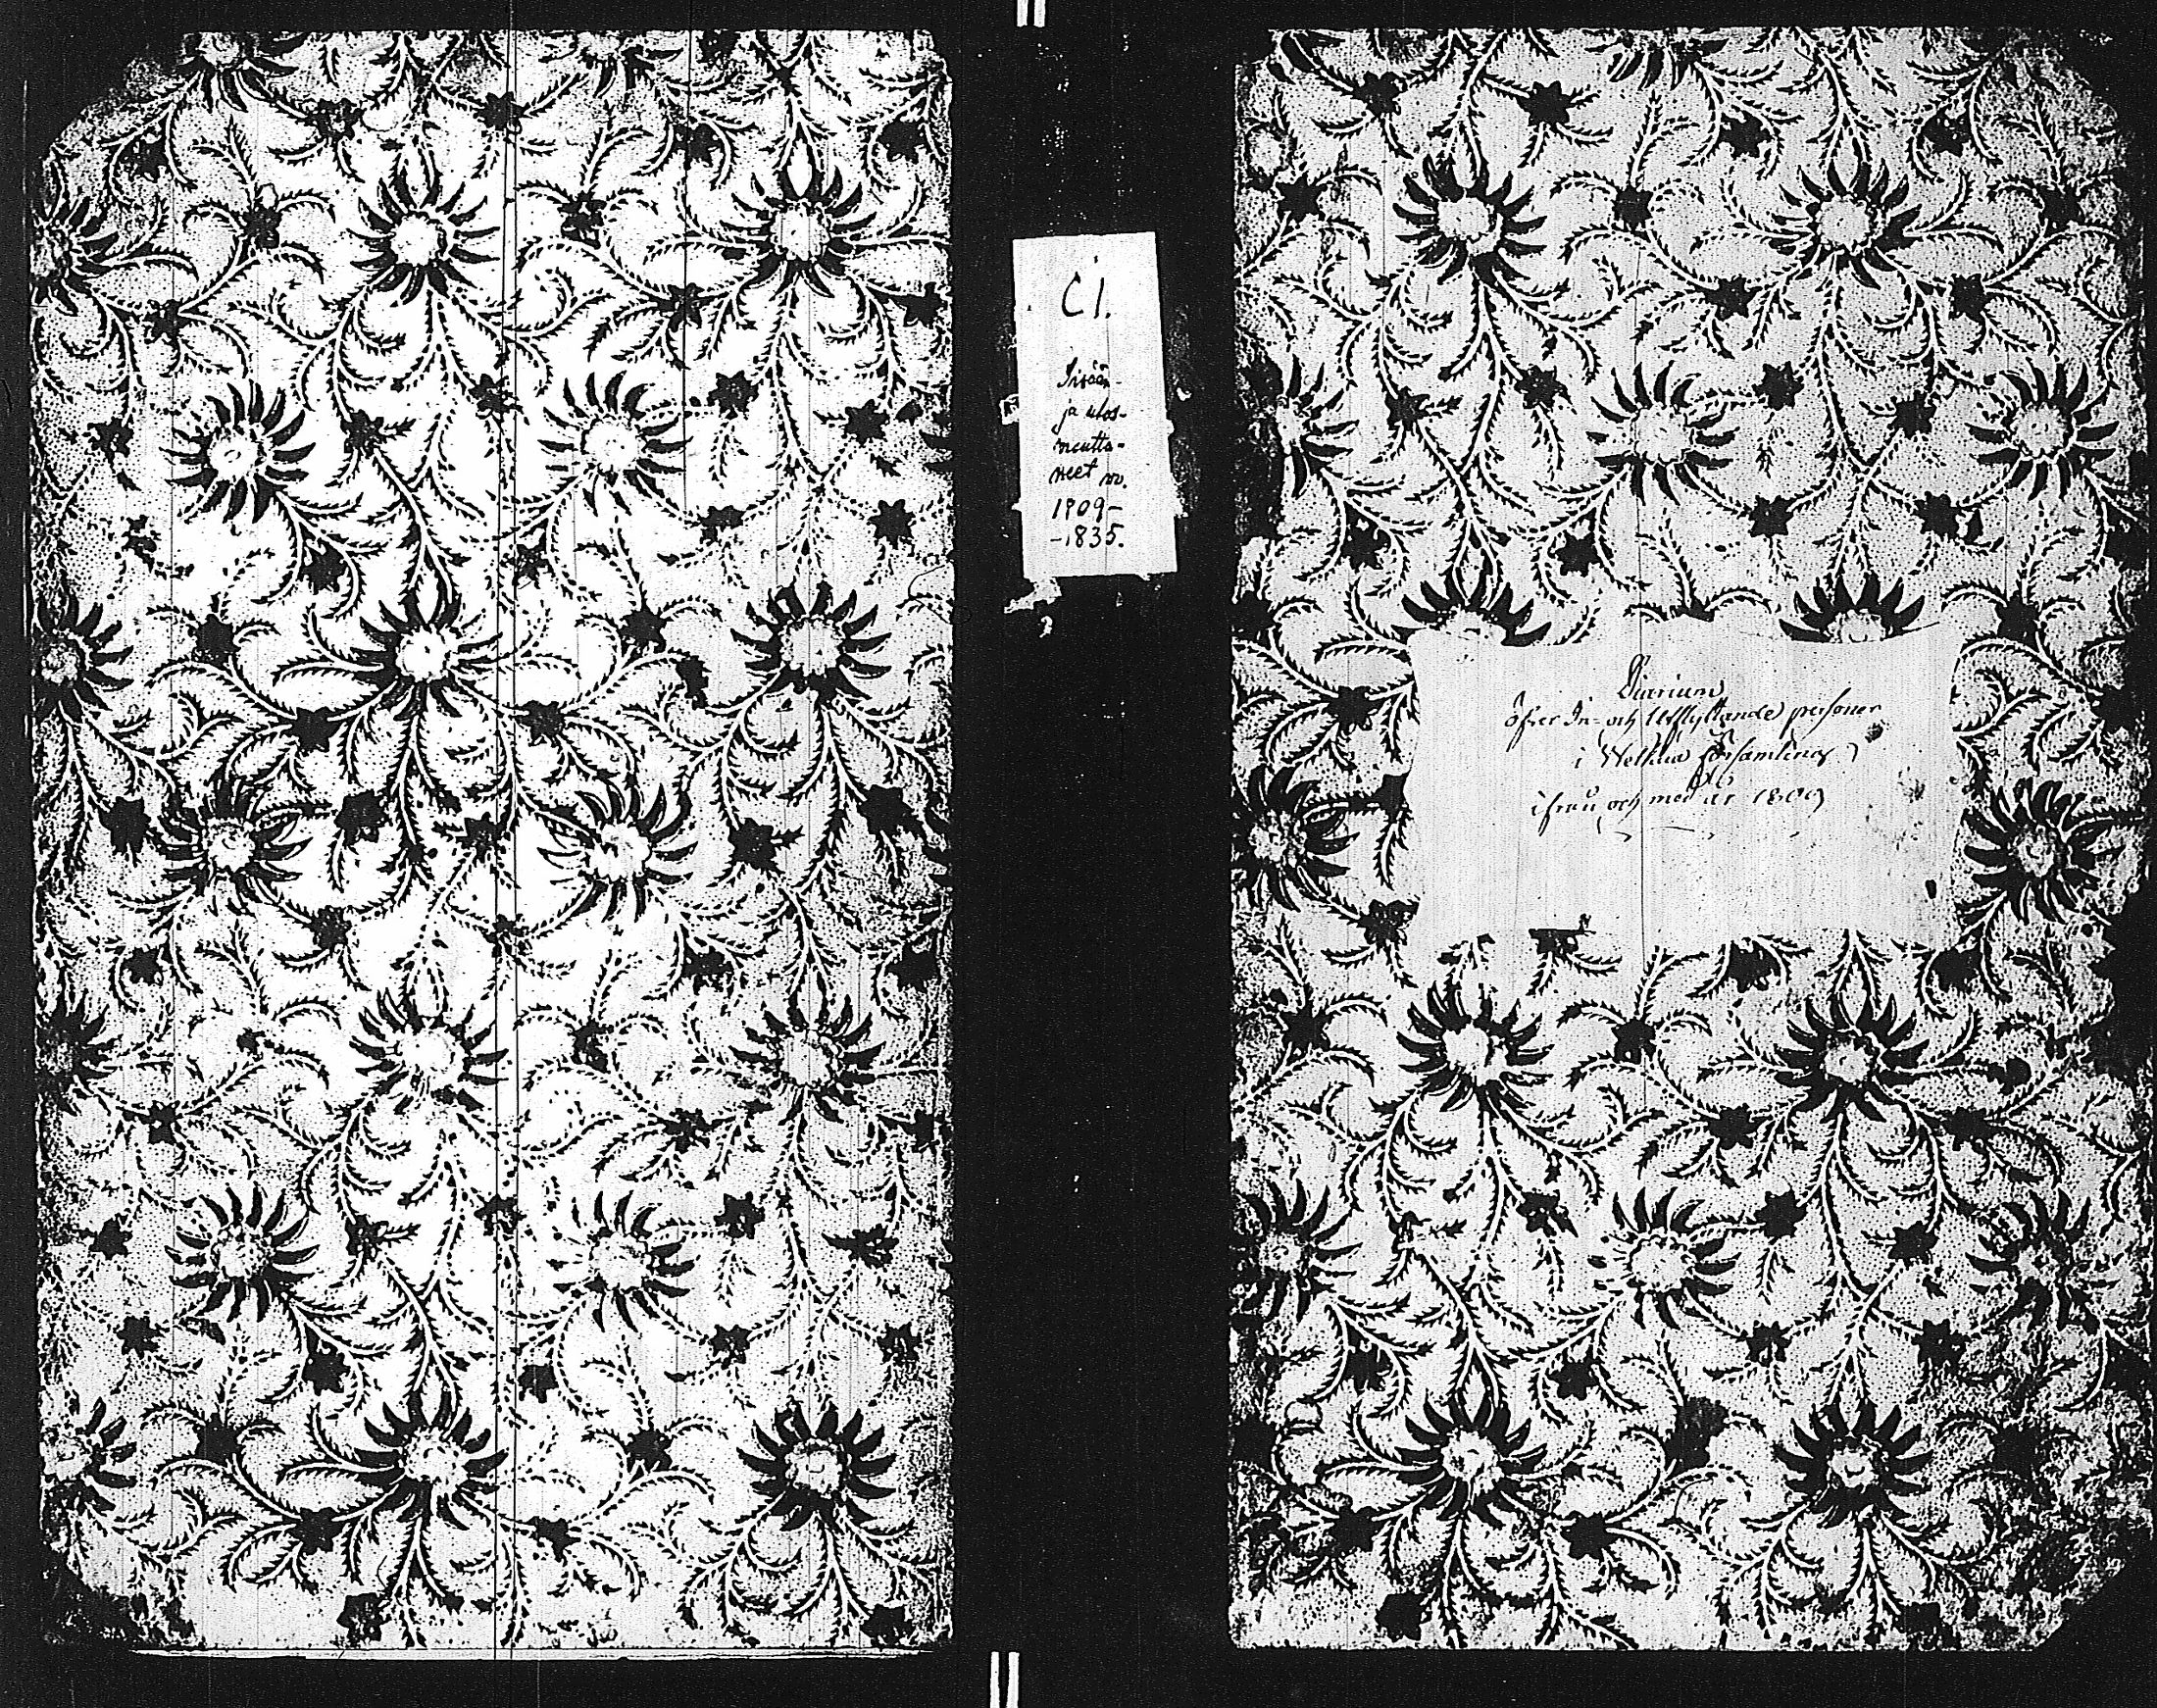 C I.
Sisään-
ja ulos-
muutta-
neet vv.
1809-
-1835.
Diarium
öfver In- och Utflyttande personer
i Wethla församling
ifrån och med år 1809